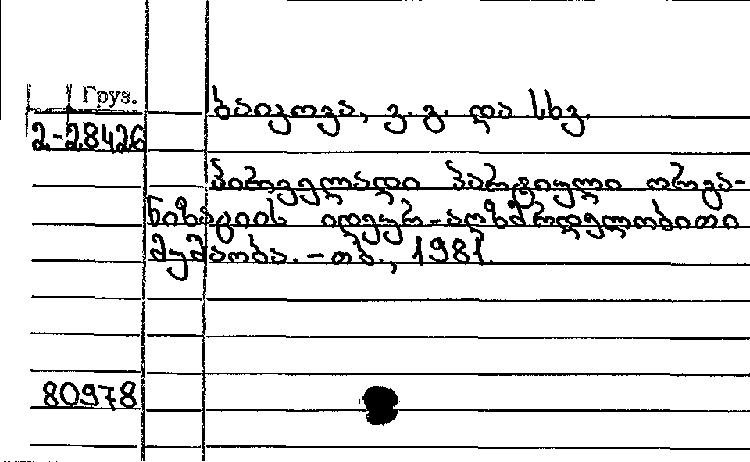 Груз.
2-28426
ბაიკოვა, ვ. გ. და სხვ.
პირველადი პარტიული ორგა-
ნიზაციის იდეურ-აღმზრდელობითი
მუშაობა. - თბ., 1981.
80978